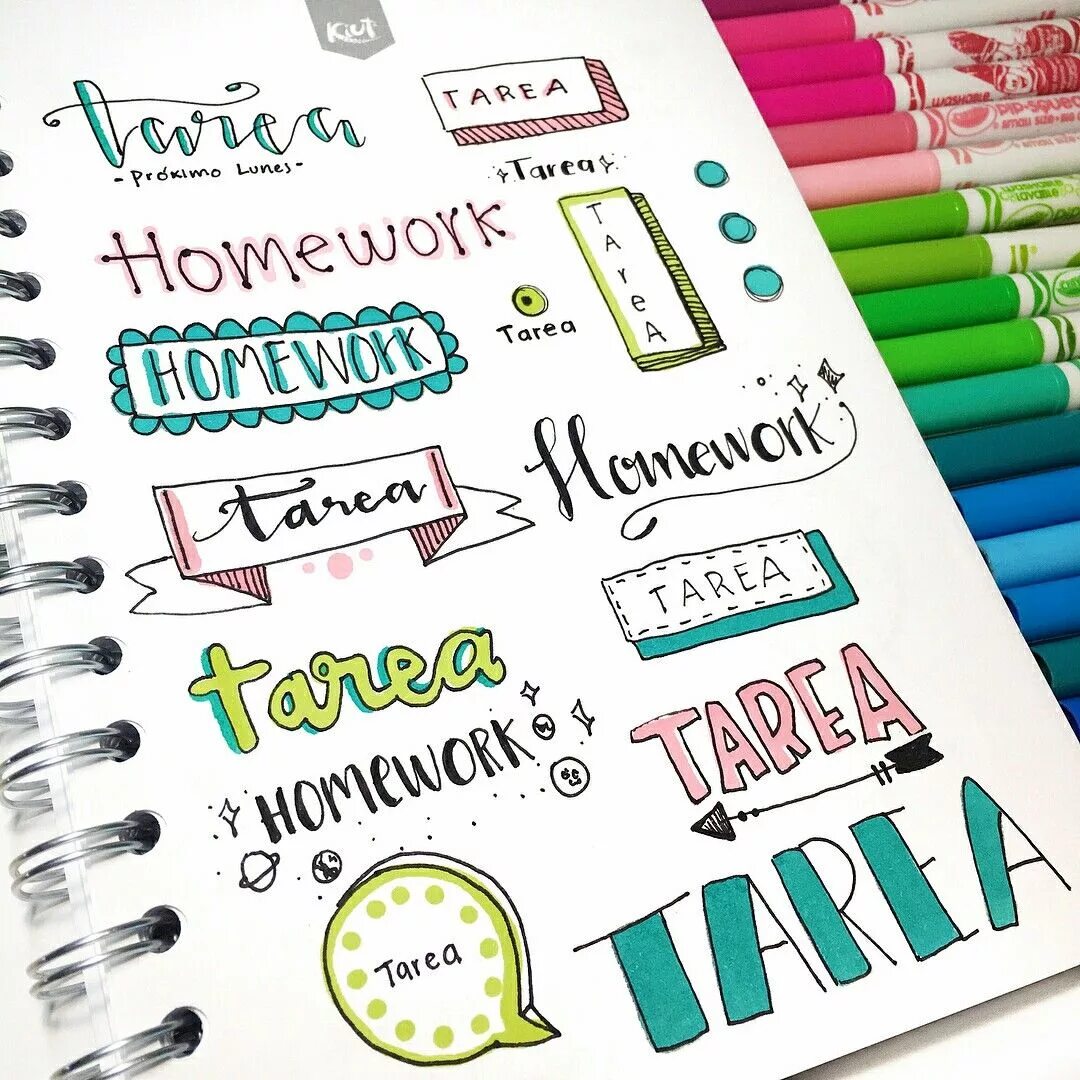 Kiut
tarea
-Próximo Lunes-
TAREA
Tarea
Homework
TAreA
Tarea
HOMEWORK
tarea
Homework
TAREA
tarea
HOMEWORK
TAREA
Tarea
TAREA
WASHABLE
PiP-SQUEA